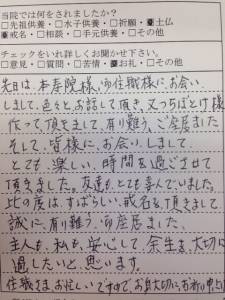 当院では何をされましたか?
□先祖供養・□水子供養・□祈願・■土仏
■戒名・□相談・□手元供養・□その他
チェックをいれ詳しくお聞かせ下さい。
□意見・□質問・□苦情・■お礼・□その他
先日は、本寿院様、御住職様に、お会い
しまして、色々と、お話して頂き、又つちぼとけ様
作って、頂きまして、有り難う、ご座居ました
そして、皆様に、お会いしまして、
とても楽しい、時間を過ごさせて
頂きました。友達も、とても喜んでいました。
此の度は、すばらしい、戒名を頂きまして
誠に、有り難う、御座居ました。
主人も、私も、安心して、余生を、大切に
過したいと、思います。
住職さま、お忙しいですので、お身大切にお祈り申し上